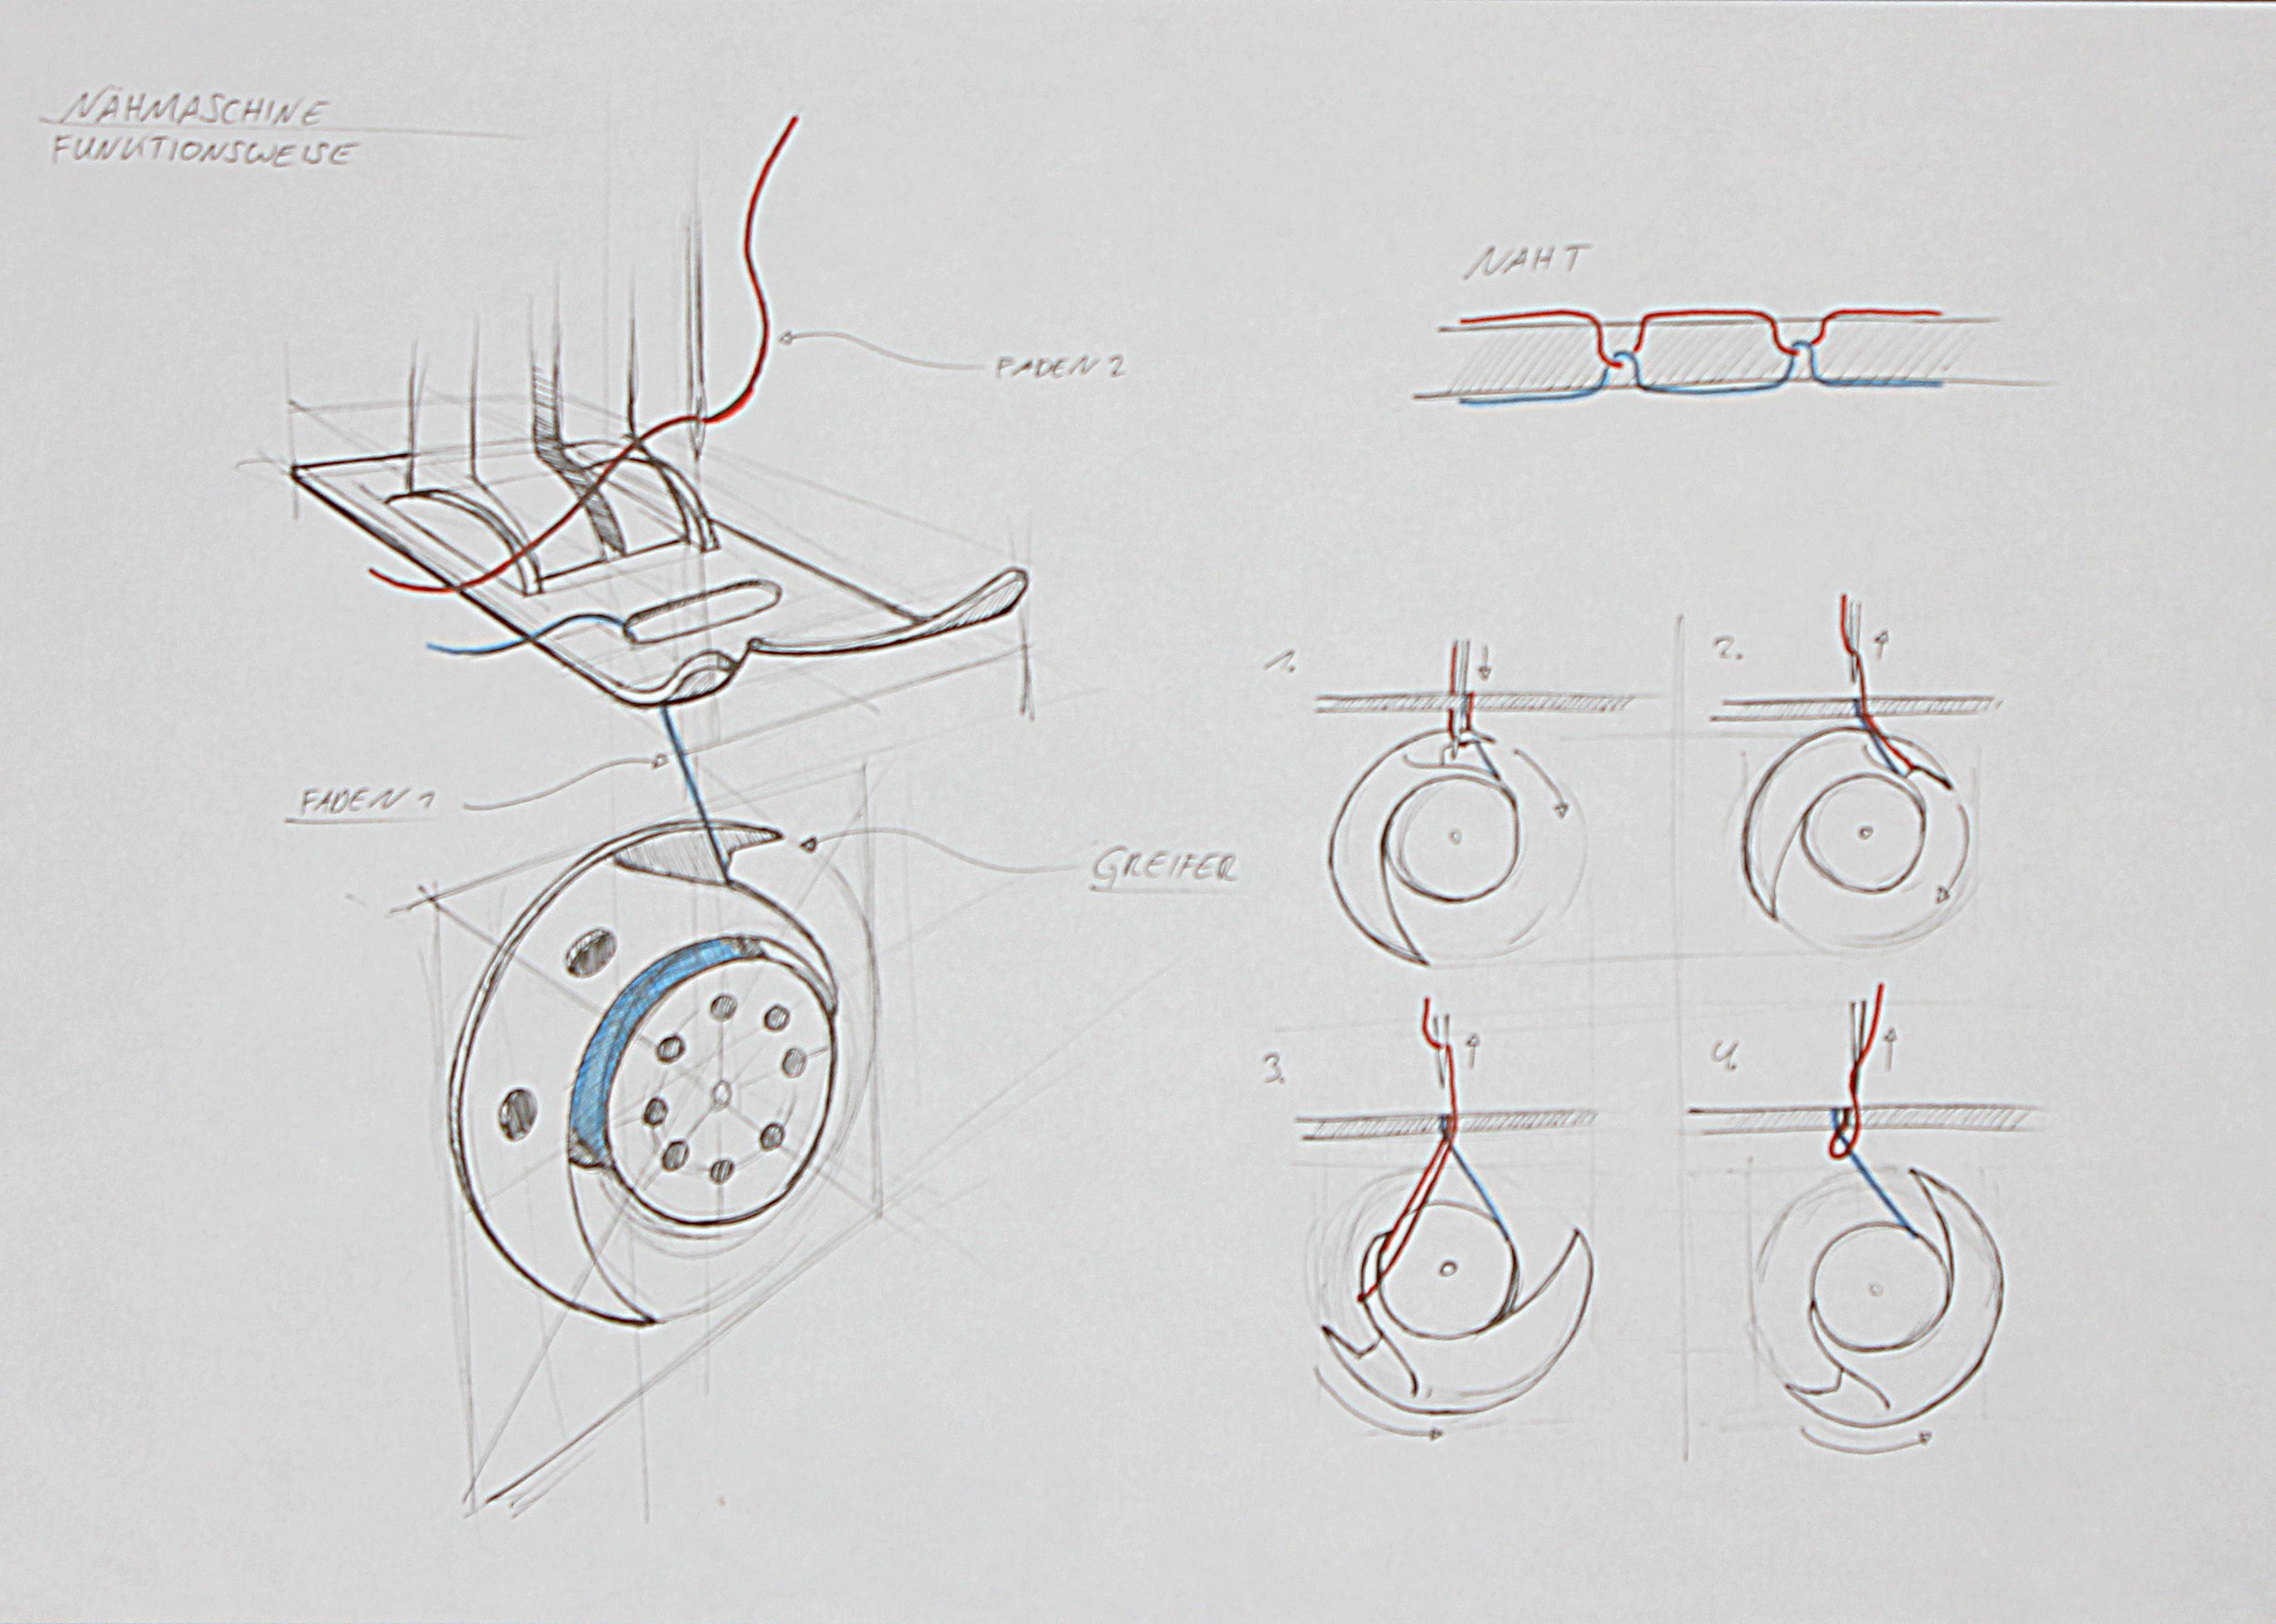 NÄHMASCHINE
FUNKTIONSWEISE
FADEN 2
FADEN 1
GREIFER
NAHT
1.
2.
3.
4.